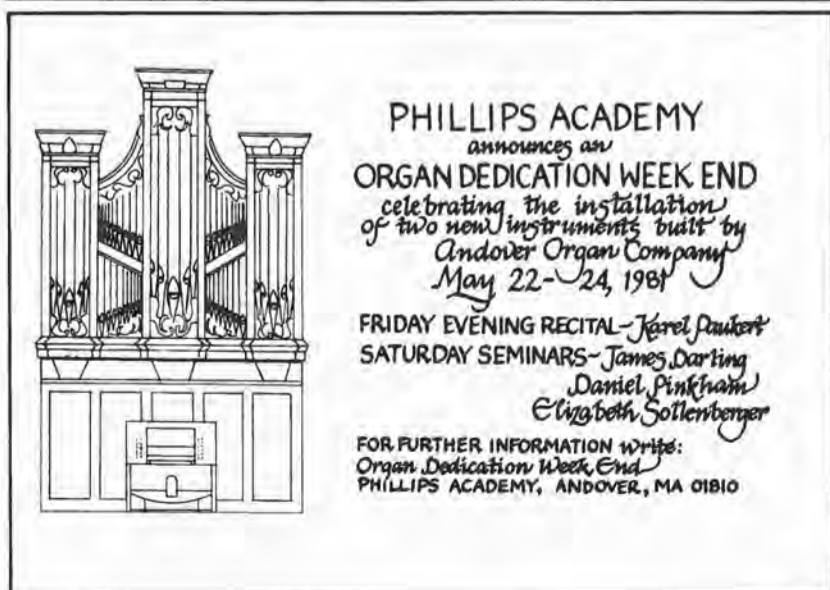 PHILLIPS ACADEMY
announces an
ORGAN DEDICATION WEEK END
celebrating the installation
of two new instruments built by
Andover Organ Company
May 22-24, 1981
FRIDAY EVENING RECITAL-Karel Paukert
SATURDAY SEMINARS-James Darling
Daniel Pinkham
Elizabeth Sollenberger
FOR FURTHER INFORMATION write:
Organ Dedication Week End
PHILLIPS ACADEMY, ANDOVER, MA 01810